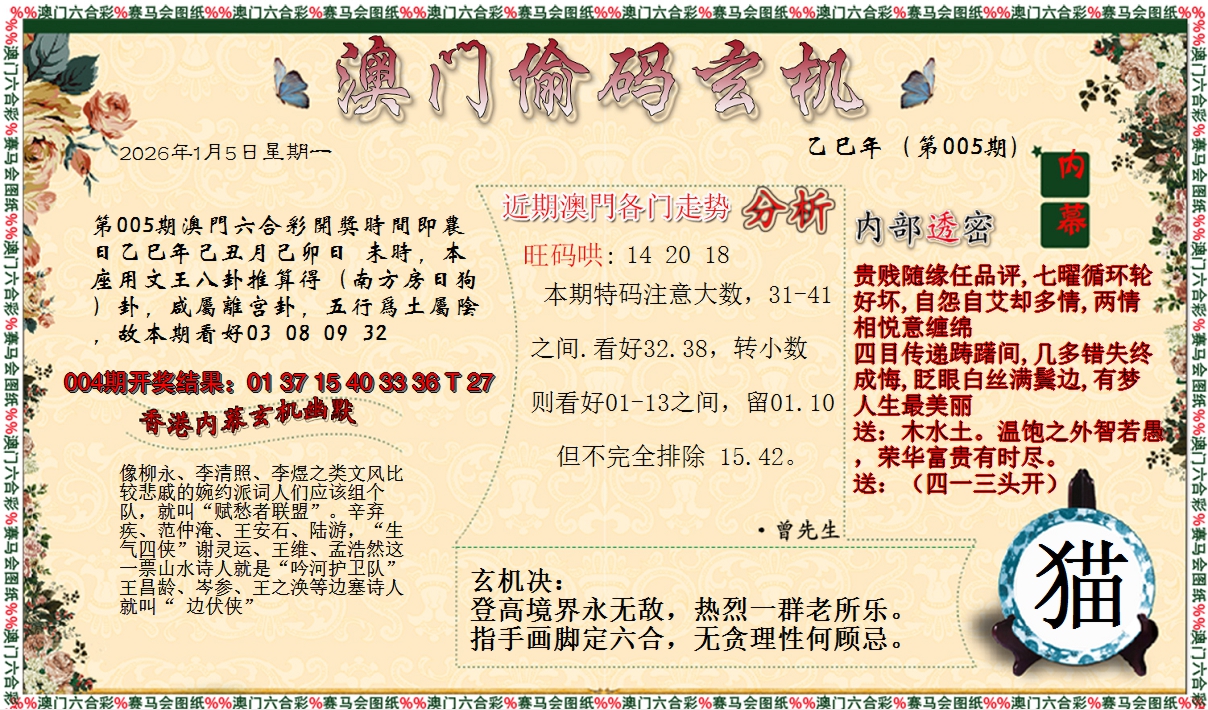 %%澳门六合彩%赛马会图纸%%澳门六合彩%赛马会图纸%%澳门六合彩%赛马会图纸%%澳门六合彩%赛马会图纸%%澳门六合彩%赛马会图纸%%澳门六合彩%赛马会图纸%%
澳门偷码玄机
2026年1月5日星期一
乙巳年（第005期）
内幕
第005期澳門六合彩開獎時間即農
日乙巳年己丑月己卯日 未時，本
座用文王八卦推算得（南方房日狗
）卦，咸屬離宫卦，五行爲土屬陰
，故本期看好03 08 09 32
004期开奖结果：01 37 15 40 33 36 T 27
香港内幕玄机幽默
像柳永、李清照、李煜之类文风比
较悲戚的婉约派词人们应该组个
队，就叫“赋愁者联盟”。辛弃
疾、范仲淹、王安石、陆游，“生
气四侠”谢灵运、王维、孟浩然这
一票山水诗人就是“吟河护卫队”
王昌龄、岑参、王之涣等边塞诗人
就叫“ 边伏侠”
近期澳門各门走势 分析
旺码哄: 14 20 18
本期特码注意大数，31-41
之间.看好32.38，转小数
则看好01-13之间，留01.10
但不完全排除 15.42。
·曾先生
内部透密
贵贱随缘任品评,七曜循环轮
好坏,自怨自艾却多情,两情
相悦意缠绵
四目传递踌躇间,几多错失终
成悔,眨眼白丝满鬓边,有梦
人生最美丽
送：木水土。温饱之外智若愚
，荣华富贵有时尽。
送：（四一三头开）
玄机决：
登高境界永无敌，热烈一群老所乐。
指手画脚定六合，无贪理性何顾忌。
猫
%%澳门六合彩%赛马会图纸%%澳门六合彩%赛马会图纸%%澳门六合彩%赛马会图纸%%澳门六合彩%赛马会图纸%%澳门六合彩%赛马会图纸%%澳门六合彩%赛马会图纸%%